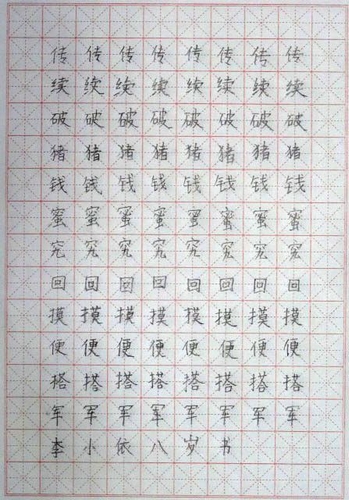 传传传传传传传传
续续续续续续续续
破破破破破破破破
猪猪猪猪猪猪猪猪
钱钱钱钱钱钱钱钱
蜜蜜蜜蜜蜜蜜蜜蜜
究究究究究究究究
回回回回回回回回
摸摸摸摸摸摸摸摸
便便便便便便便便
搭搭搭搭搭搭搭搭
军军军军军军军军
李小依八岁书